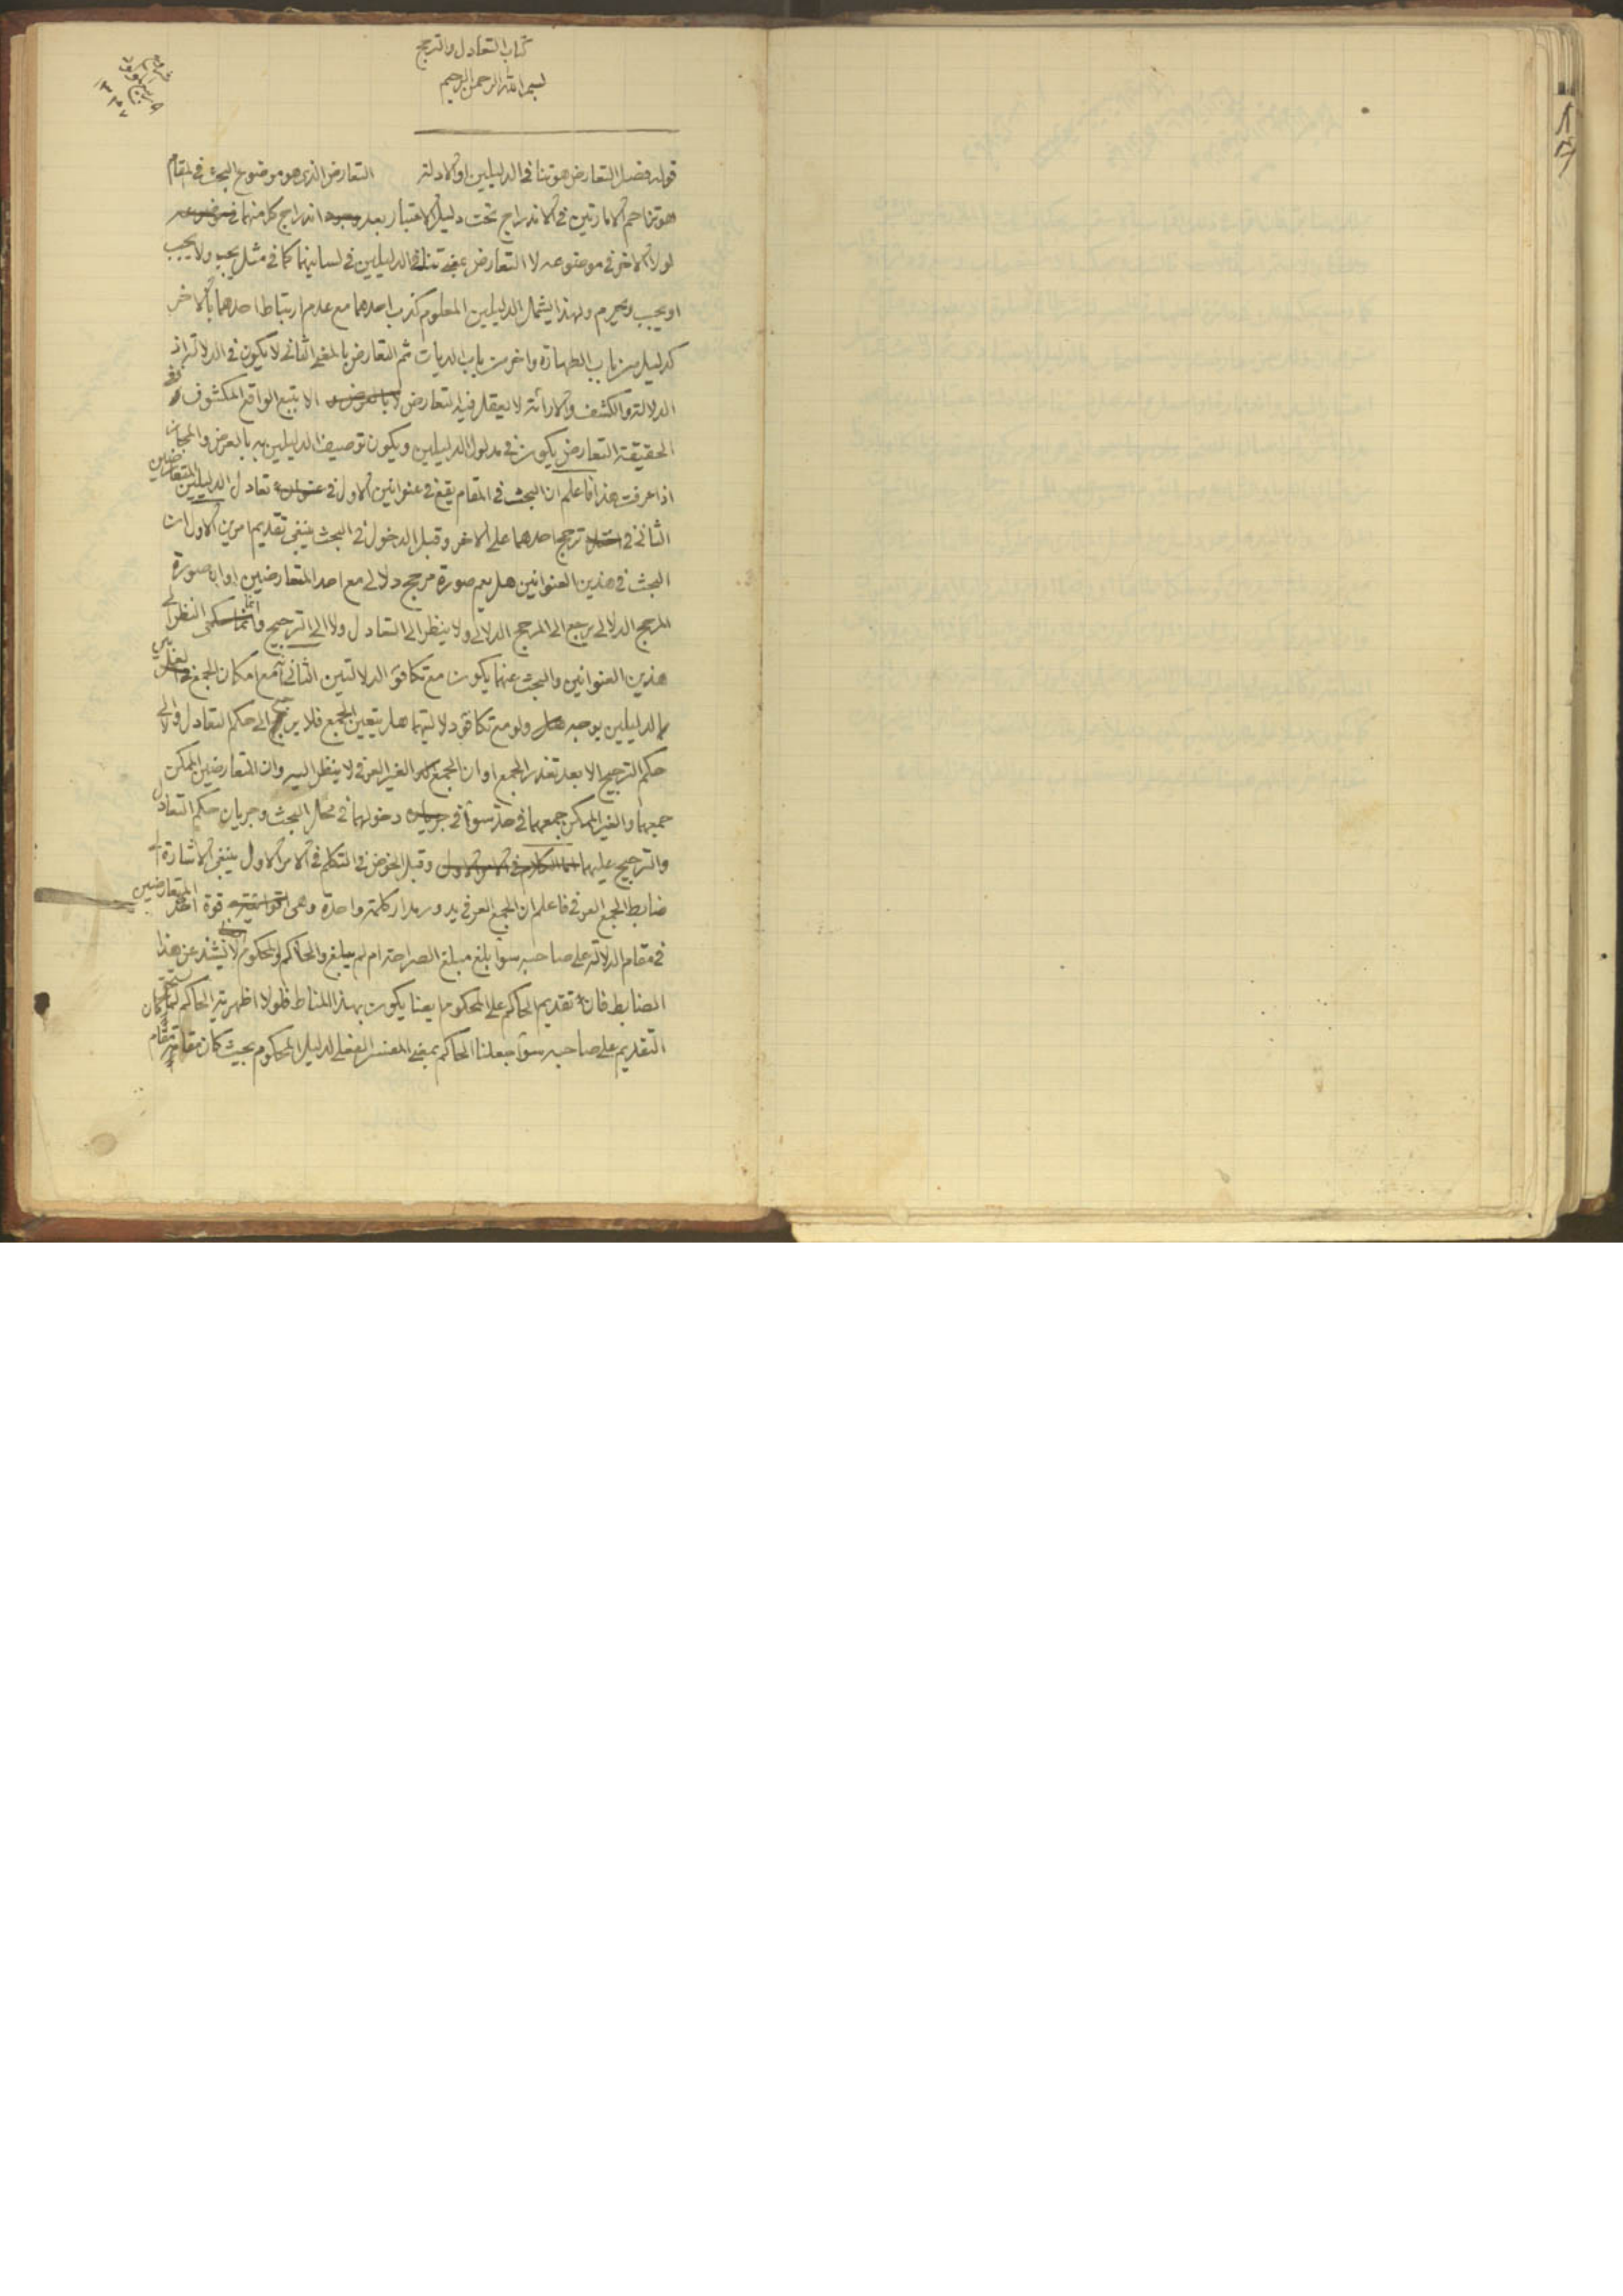 كتاب التعادل والترجيح
بسم الله الرحمن الرحيم
قوله فصل التعارض هو تنافي الدليلين او الادلة التعارض الذي هو موضوع البحث في المقام
هو تزاحم الامارتين في الاندراج تحت دليل الاعتبار بعد اندراج كل منهما في موضوعه
لولا الاخر في موضوعه لا التعارض بمعنى تنافي الدليلين في لسانيهما كما في مثل يجب ولا يجب
او يجب ويحرم ولهذا يشمل الدليلين المعلوم كذب احدهما مع عدم ارتباط احدهما بالاخر
كدليل من باب الطهارة واخر من باب الديات ثم التعارض بالمعنى الثاني لا يكون في الدلالة اذ
الدلالة والكشف والاراءة لا يعقل فيه التعارض الا بتبع الواقع المكشوف وفي
الحقيقة التعارض يكون في مدلول الدليلين ويكون توصيف الدليلين به بالعرض والمجاز
اذا عرفت هذا فاعلم ان البحث في المقام يقع في عنوانين الاول في تعادل الدليلين المتعارضين
الثاني في ترجيح احدهما على الاخر وقبل الدخول في البحث ينبغي تقديم امرين الاول ان
البحث في هذين العنوانين هل يعم صورة مرجح دلالي مع احد المتعارضين او ان صورة
المرجح الدلالي يرجع الى المرجح الدلالي ولا ينظر الى التعادل ولا الى الترجيح وانما النظر الى
هذين العنوانين والبحث عنهما يكون مع تكافؤ الدلالتين الثاني مع امكان الجمع في
الدليلين بوجه ولو مع تكافؤ دلالتيهما هل يتعين الجمع فلا يرجع الى حكم التعادل ولا الى
حكم الترجيح الا بعد تعذر الجمع او ان الجمع الغير العرفي لا ينظر اليه وان المتعارضين الممكن
جمعهما والغير الممكن جمعهما في حد سواء في دخولهما في محل البحث وجريان حكم التعادل
والترجيح عليهما وقبل الخوض في التكلم في الامر الاول ينبغي الاشارة الى
ضابط الجمع العرفي فاعلم ان الجمع العرفي يدور مدار كلمة واحدة وهي قوة احد المتعارضين
في مقام الدلالة على صاحبه سواء بلغ مبلغ الصراحة ام لم يبلغ والحاكم والمحكوم لا يشذ عن هذا
الضابط فان تقديم الحاكم على المحكوم ايضا يكون بهذا المناط فلولا اظهرية الحاكم لما كان يستحق
التقديم على صاحبه سواء جعلنا الحاكم بمعنى المفسر اللفظي لدليل المحكوم بحيث كان مقامه مقام